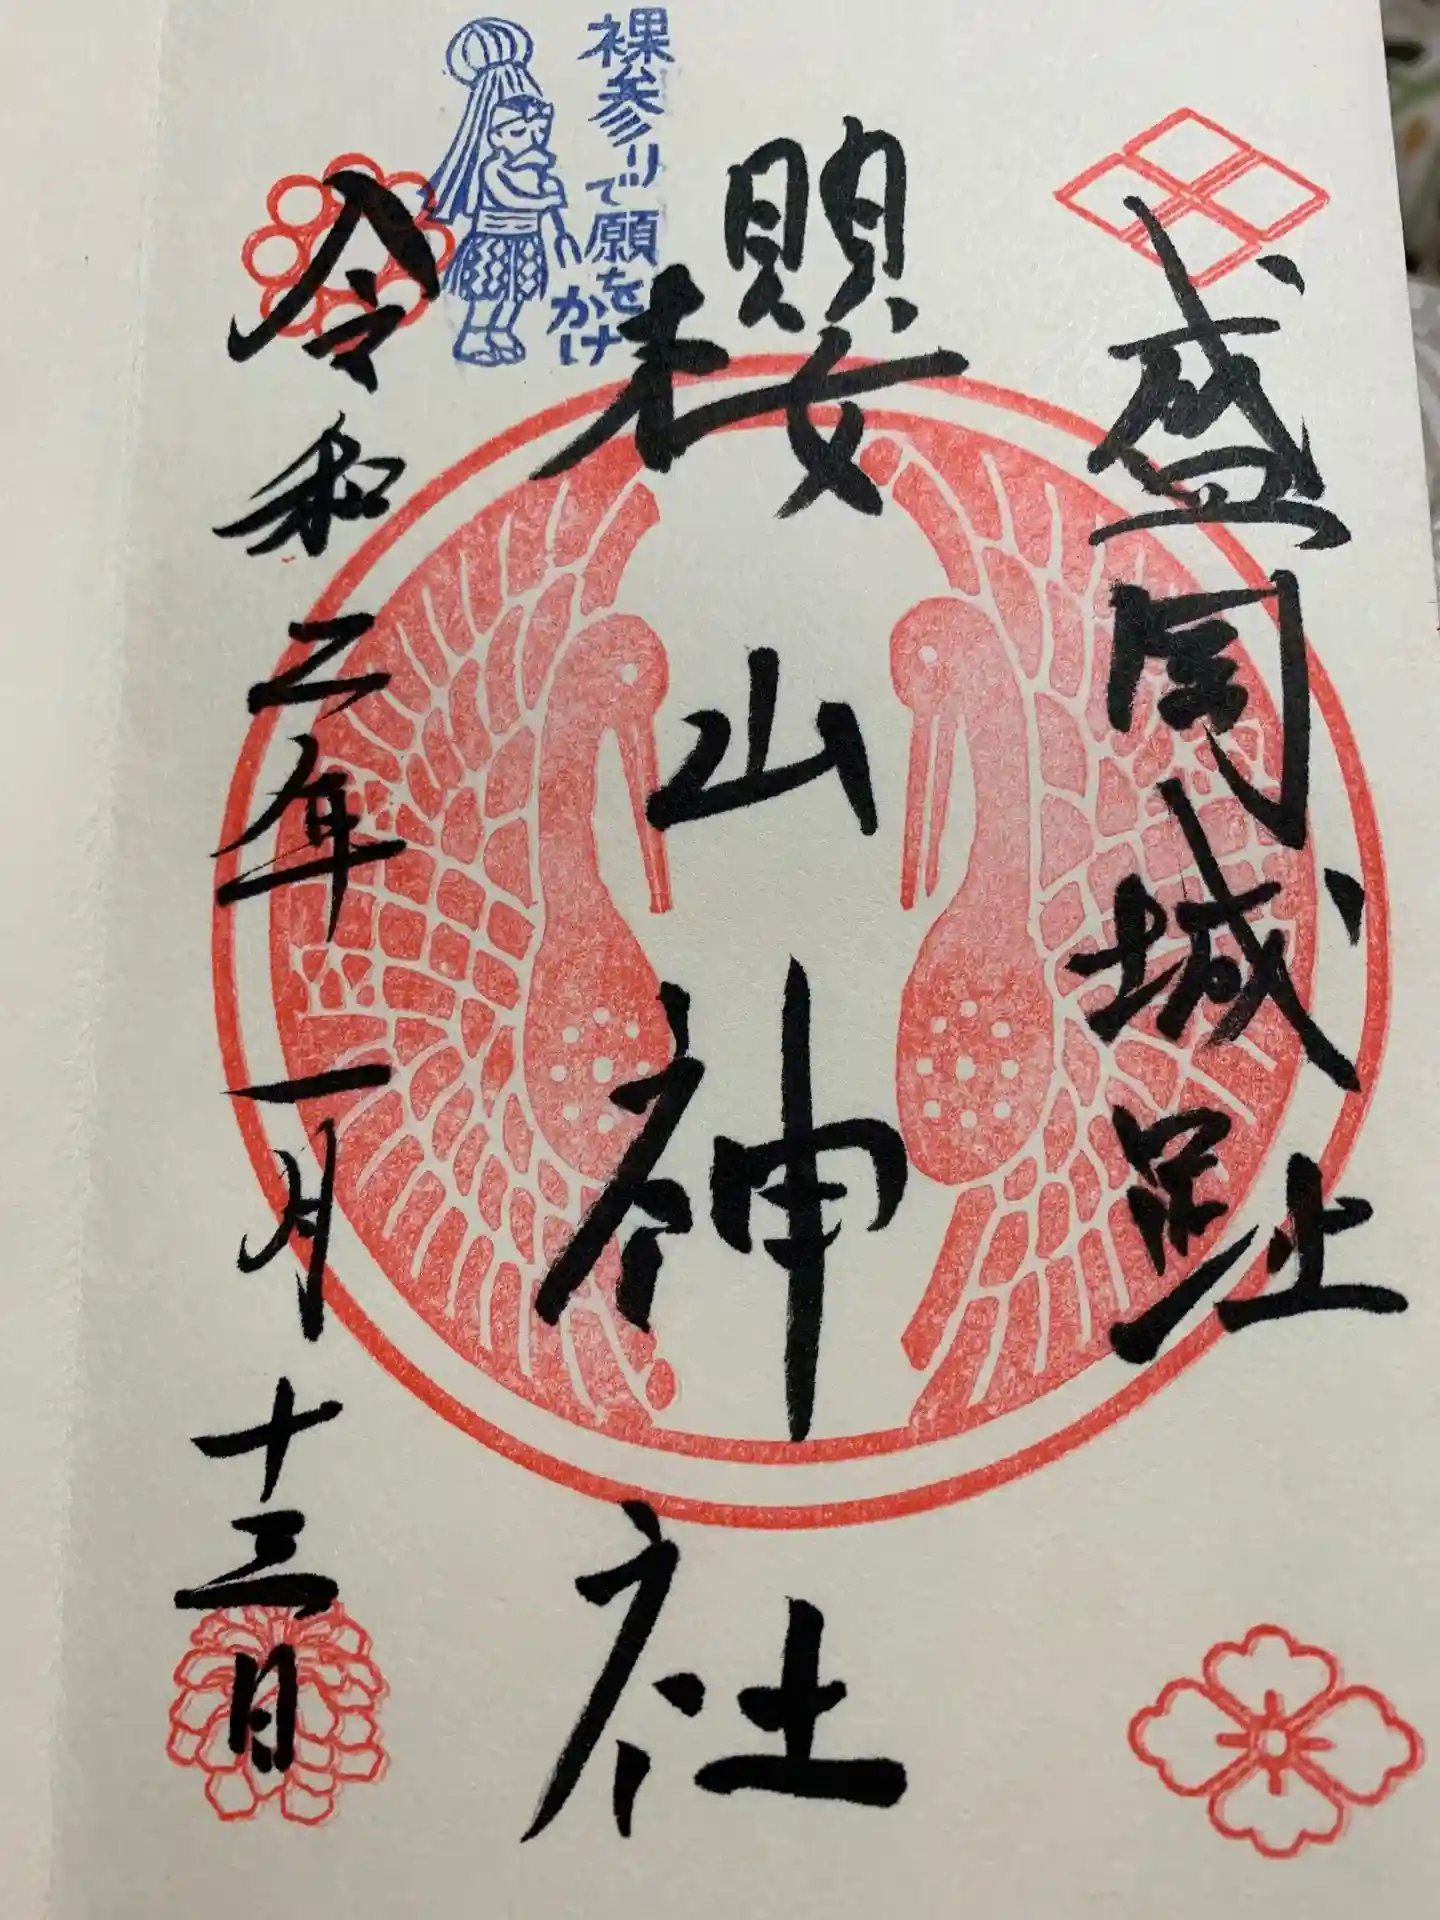 盛岡城跡址
櫻山神社
裸参りで願をかけ
令和二年一月十三日